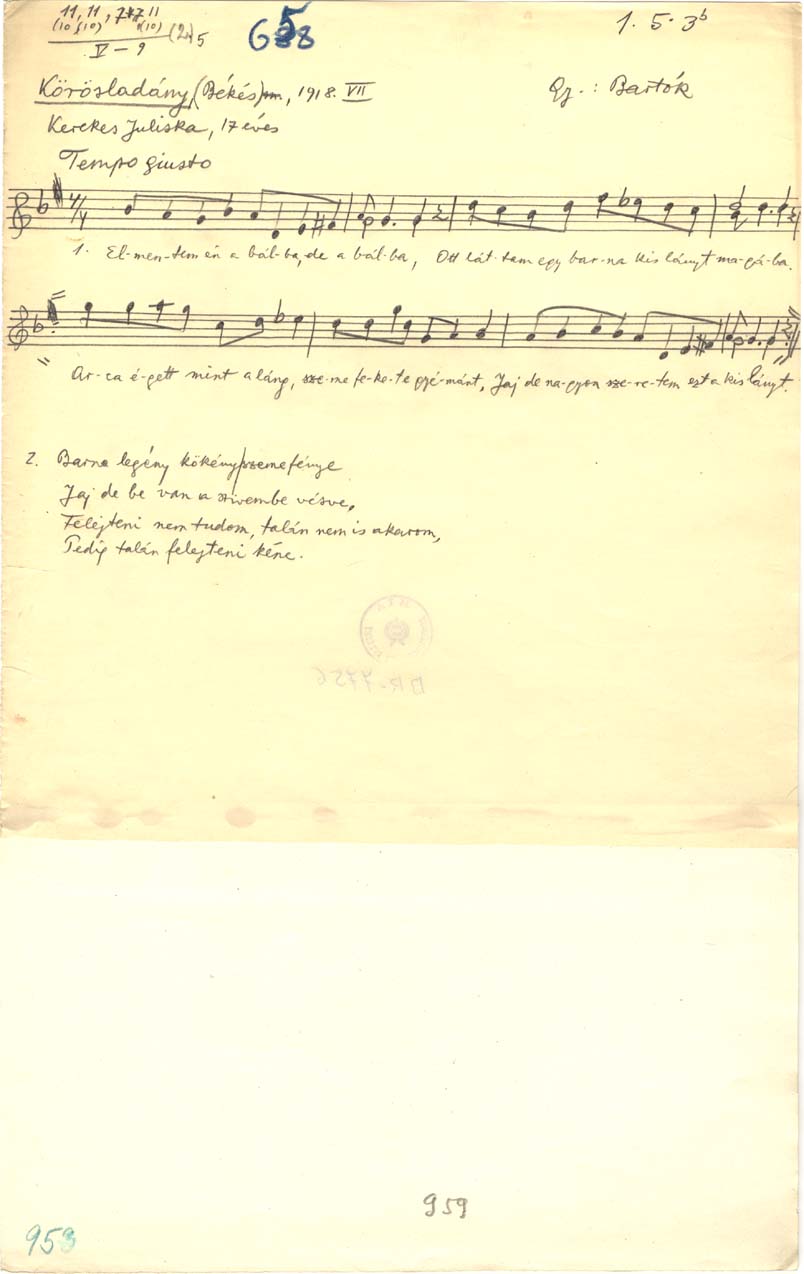 11, 11, 7+7 11
(10 (10) (10) (2.) 5
V – 9
658
1. 5. 3b
Körösladány, (Békés)m., 1918. VII
Gy.: Bartók
Kerekes Juliska, 17 éves
Tempo giusto
4/4
1. El-men-tem én a bál-ba, de a bál-ba, Ott lát-tam egy bar-na kis lányt ma-gá-ba.
Ar-ca é-gett mint a láng, sze-me fe-ke-te gyé-mánt, Jaj de na-gyon sze-re-tem ezt a kis lányt.
2. Barna legény kökény szeme fénye
Jaj de be van a szivembe vésve,
Felejteni nem tudom, talán nem is akarom,
Pedig talán felejteni kéne.
BR-7756
959
953